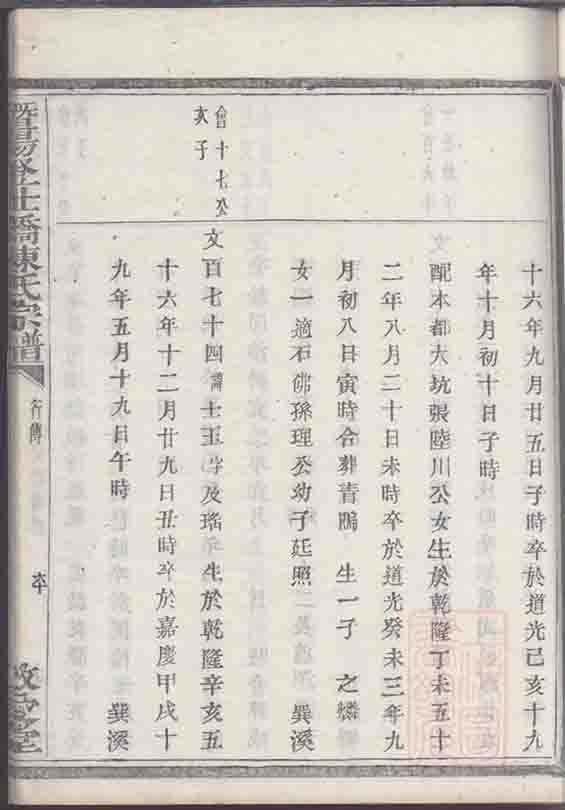 十六年九月廿五日子時卒於道光己亥十九
年十月初十日子時
配本都大坑張陸川公女生於乾隆丁未五十
二年八月二十日未時卒於道光癸未三年九
月初八日寅時合葬青鴈 生一子 之麟
女一適石佛孫理公幼子廷照 巽溪
會十七公
亥子
文百七十四諱士玉字及瑤 生於乾隆辛亥五
十六年十二月廿九日丑時卒於嘉慶甲戌十
九年五月十九日午時 巽溪
暨陽登仕橋陳氏宗譜
行傳